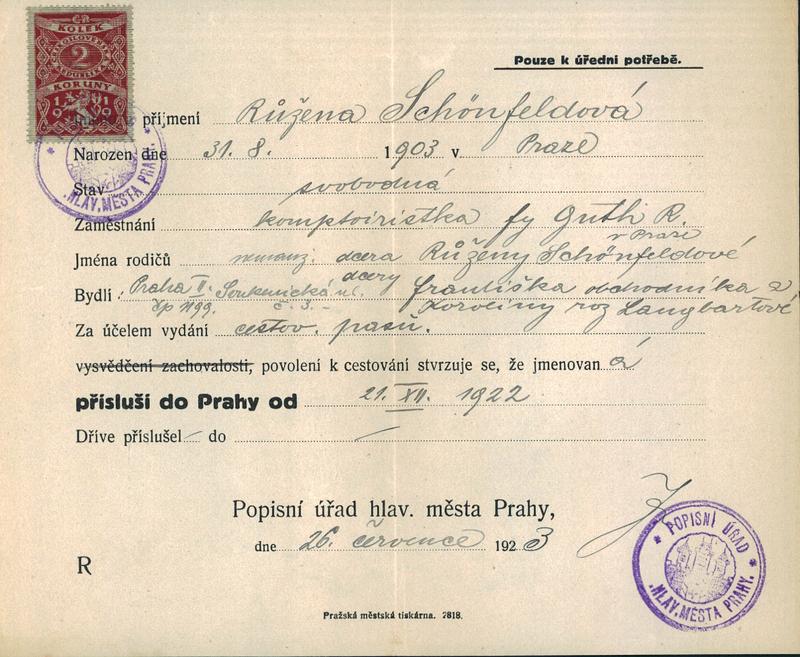 Pouze k úřední potřebě.
ČR
KOLEK
ČESKOSLOVENSKÁ
REPUBLIKA
2
KORUNY
1919
příjmení Růžena Schönfeldová
Narozen dne 31. 8. 1903 v Praze
HLAV. MĚSTA PRAHY.
Stav svobodná
Zaměstnání komptoiristka fy Guth R.
v Praze
Jména rodičů nemanž. dcera Růženy Schönfeldové
dcery Františka obchodníka a
Bydlí: Praha II. Soukenická ul. Karoliny roz Langbartové
čp 1199. č. 3. –
Za účelem vydání cestov. pasu.
vysvědčení zachovalosti, povolení k cestování stvrzuje se, že jmenovan á
přísluší do Prahy od 21. XII. 1922
Dříve příslušel – do –
Popisní úřad hlav. města Prahy,
dne 26. července 1923
POPISNÍ ÚŘAD
HLAV. MĚSTA PRAHY.
R
Pražská městská tiskárna. 2818.